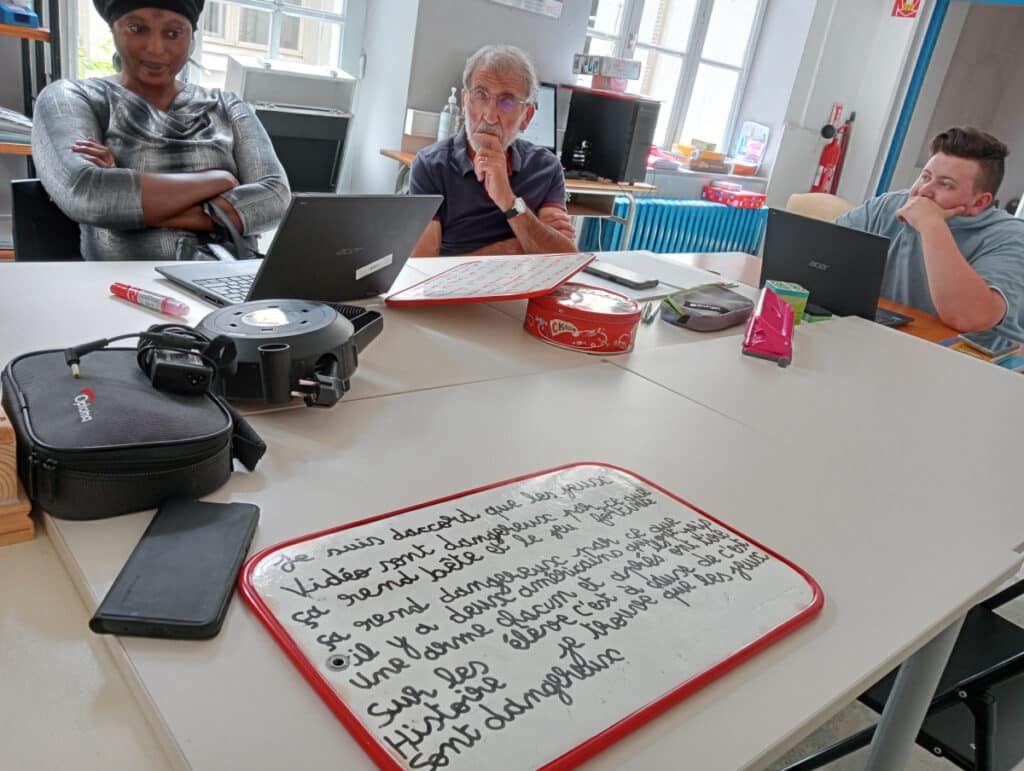 acer
acer
Optoma
Je suis daccord que les jeux
Vidéo sont dangereux par ce que
ça rend bête et le jeu fortnite
sa rend dangereux par ce que
il y a deux américains qui ont pris
une arme chacun et
Sur les élève c'est dure et c'est
Histoire je trouve que les jeux
Sont dangereux